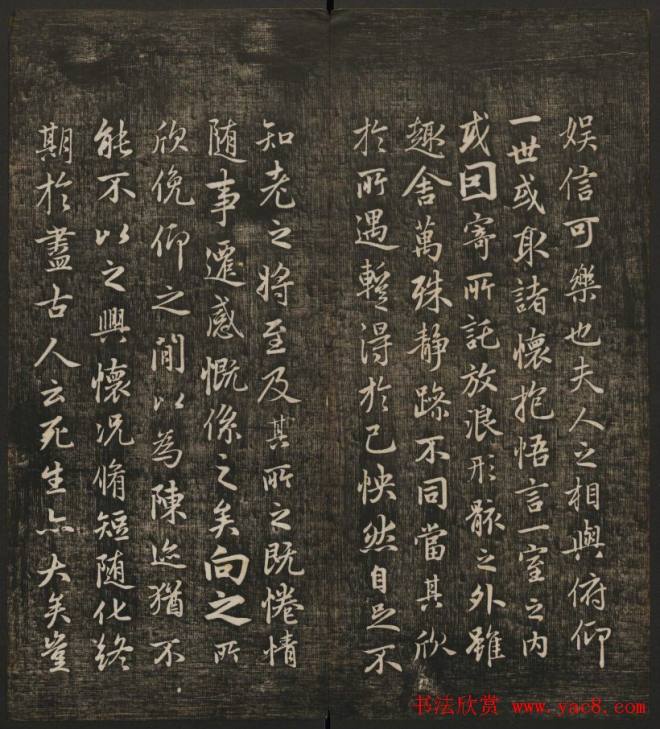 娱信可樂也夫人之相與俯仰
一世或取諸懷抱悟言一室之内
或因寄所託放浪形骸之外雖
趣舍萬殊静躁不同當其欣
於所遇蹔得於己怏然自足不
知老之將至及其所之既惓情
随事遷感慨係之矣向之所
欣俛仰之間以為陳迹猶不
能不以之興懷况脩短随化終
期於盡古人云死生亦大矣豈
书法欣赏 www.yac8.com